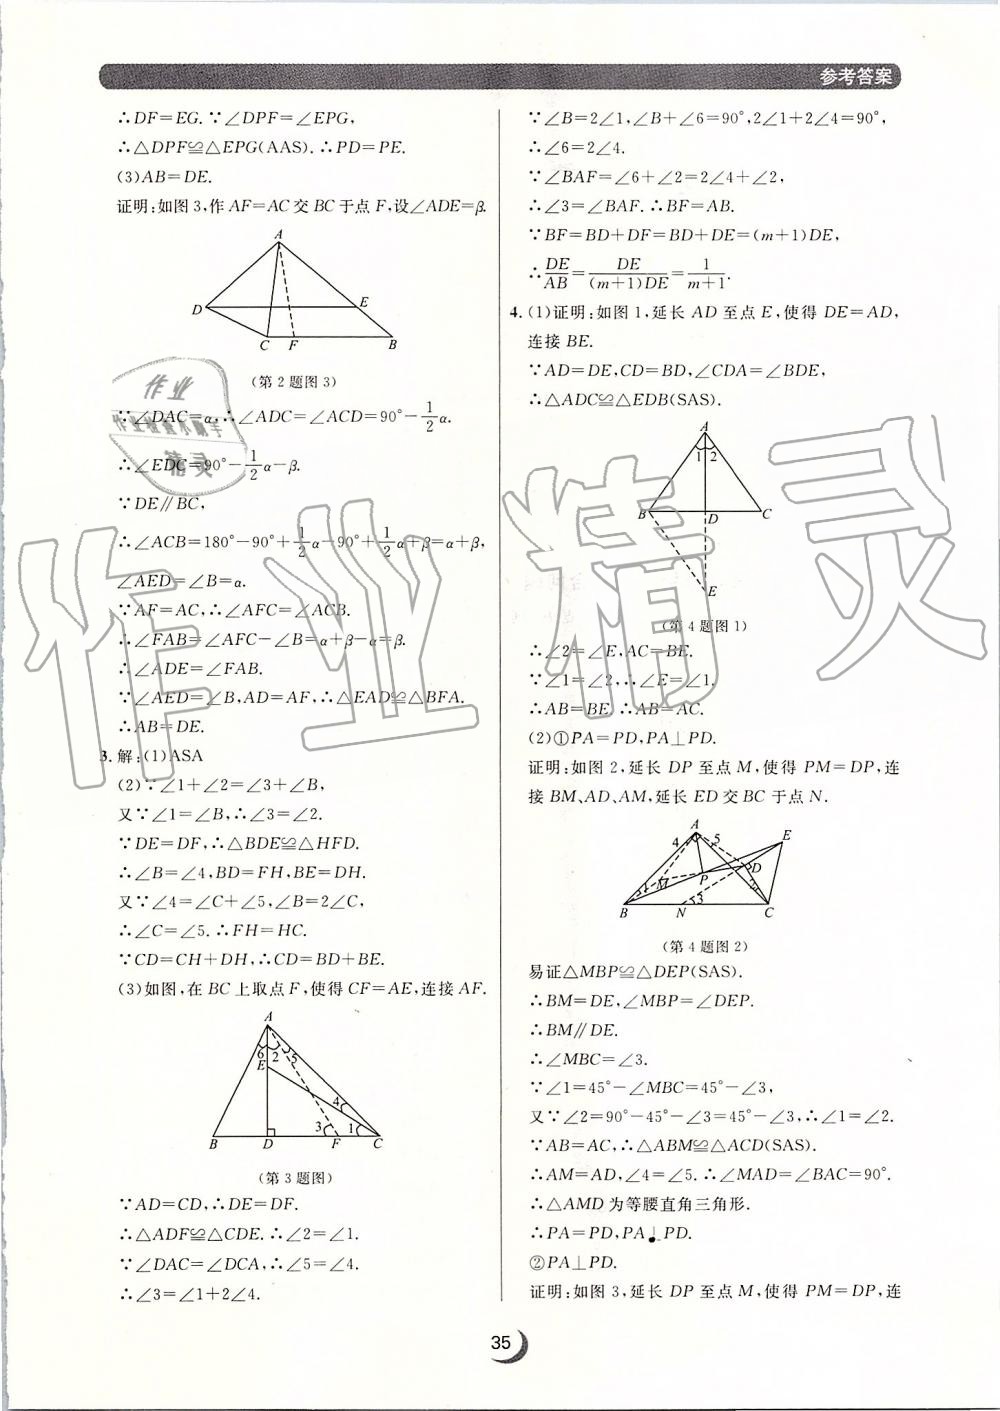 参考答案
∴DF=EG.∵∠DPF=∠EPG,
∴△DPF≌△EPG(AAS).∴PD=PE.
(3)AB=DE.
证明:如图3,作AF=AC交BC于点F,设∠ADE=β.
A
D
E
C
F
B
(第2题图3)
∵∠DAC=α,∴∠ADC=∠ACD=90°-1/2α.
∴∠EDC=90°-1/2α-β.
∵DE∥BC,
∴∠ACB=180°-90°+1/2α-90°+1/2α+β=α+β,
∠AED=∠B=α.
∵AF=AC,∴∠AFC=∠ACB.
∴∠FAB=∠AFC-∠B=α+β-α=β.
∴∠ADE=∠FAB.
∵∠AED=∠B,AD=AF,∴△EAD≌△BFA.
∴AB=DE.
3.解:(1)ASA
(2)∵∠1+∠2=∠3+∠B,
又∵∠1=∠B,∴∠3=∠2.
∵DE=DF,∴△BDE≌△HFD.
∴∠B=∠4,BD=FH,BE=DH.
又∵∠4=∠C+∠5,∠B=2∠C,
∴∠C=∠5.∴FH=HC.
∵CD=CH+DH,∴CD=BD+BE.
(3)如图,在BC上取点F,使得CF=AE,连接AF.
A
6 2 5
E
4
3 1
B D F C
(第3题图)
∵AD=CD,∴DE=DF.
∴△ADF≌△CDE.∴∠2=∠1.
∵∠DAC=∠DCA,∴∠5=∠4.
∴∠3=∠1+2∠4.
∵∠B=2∠1,∠B+∠6=90°,2∠1+2∠4=90°,
∴∠6=2∠4.
∵∠BAF=∠6+∠2=2∠4+∠2,
∴∠3=∠BAF.∴BF=AB.
∵BF=BD+DF=BD+DE=(m+1)DE,
∴DE/AB=DE/(m+1)DE=1/m+1.
4.(1)证明:如图1,延长AD至点E,使得DE=AD,
连接BE.
∵AD=DE,CD=BD,∠CDA=∠BDE,
∴△ADC≌△EDB(SAS).
A
1 2
B D C
E
(第4题图1)
∴∠2=∠E,AC=BE.
∵∠1=∠2,∴∠E=∠1.
∴AB=BE.∴AB=AC.
(2)①PA=PD,PA⊥PD.
证明:如图2,延长DP至点M,使得PM=DP,连
接BM、AD、AM,延长ED交BC于点N.
A
4 5
E
M P D
3
B N C
(第4题图2)
易证△MBP≌△DEP(SAS).
∴BM=DE,∠MBP=∠DEP.
∴BM∥DE.
∴∠MBC=∠3.
∵∠1=45°-∠MBC=45°-∠3,
又∵∠2=90°-45°-∠3=45°-∠3,∴∠1=∠2.
∵AB=AC,∴△ABM≌△ACD(SAS).
∴AM=AD,∠4=∠5.∴∠MAD=∠BAC=90°.
∴△AMD为等腰直角三角形.
∴PA=PD,PA⊥PD.
②PA⊥PD.
证明:如图3,延长DP至点M,使得PM=DP,连
35
作业精灵